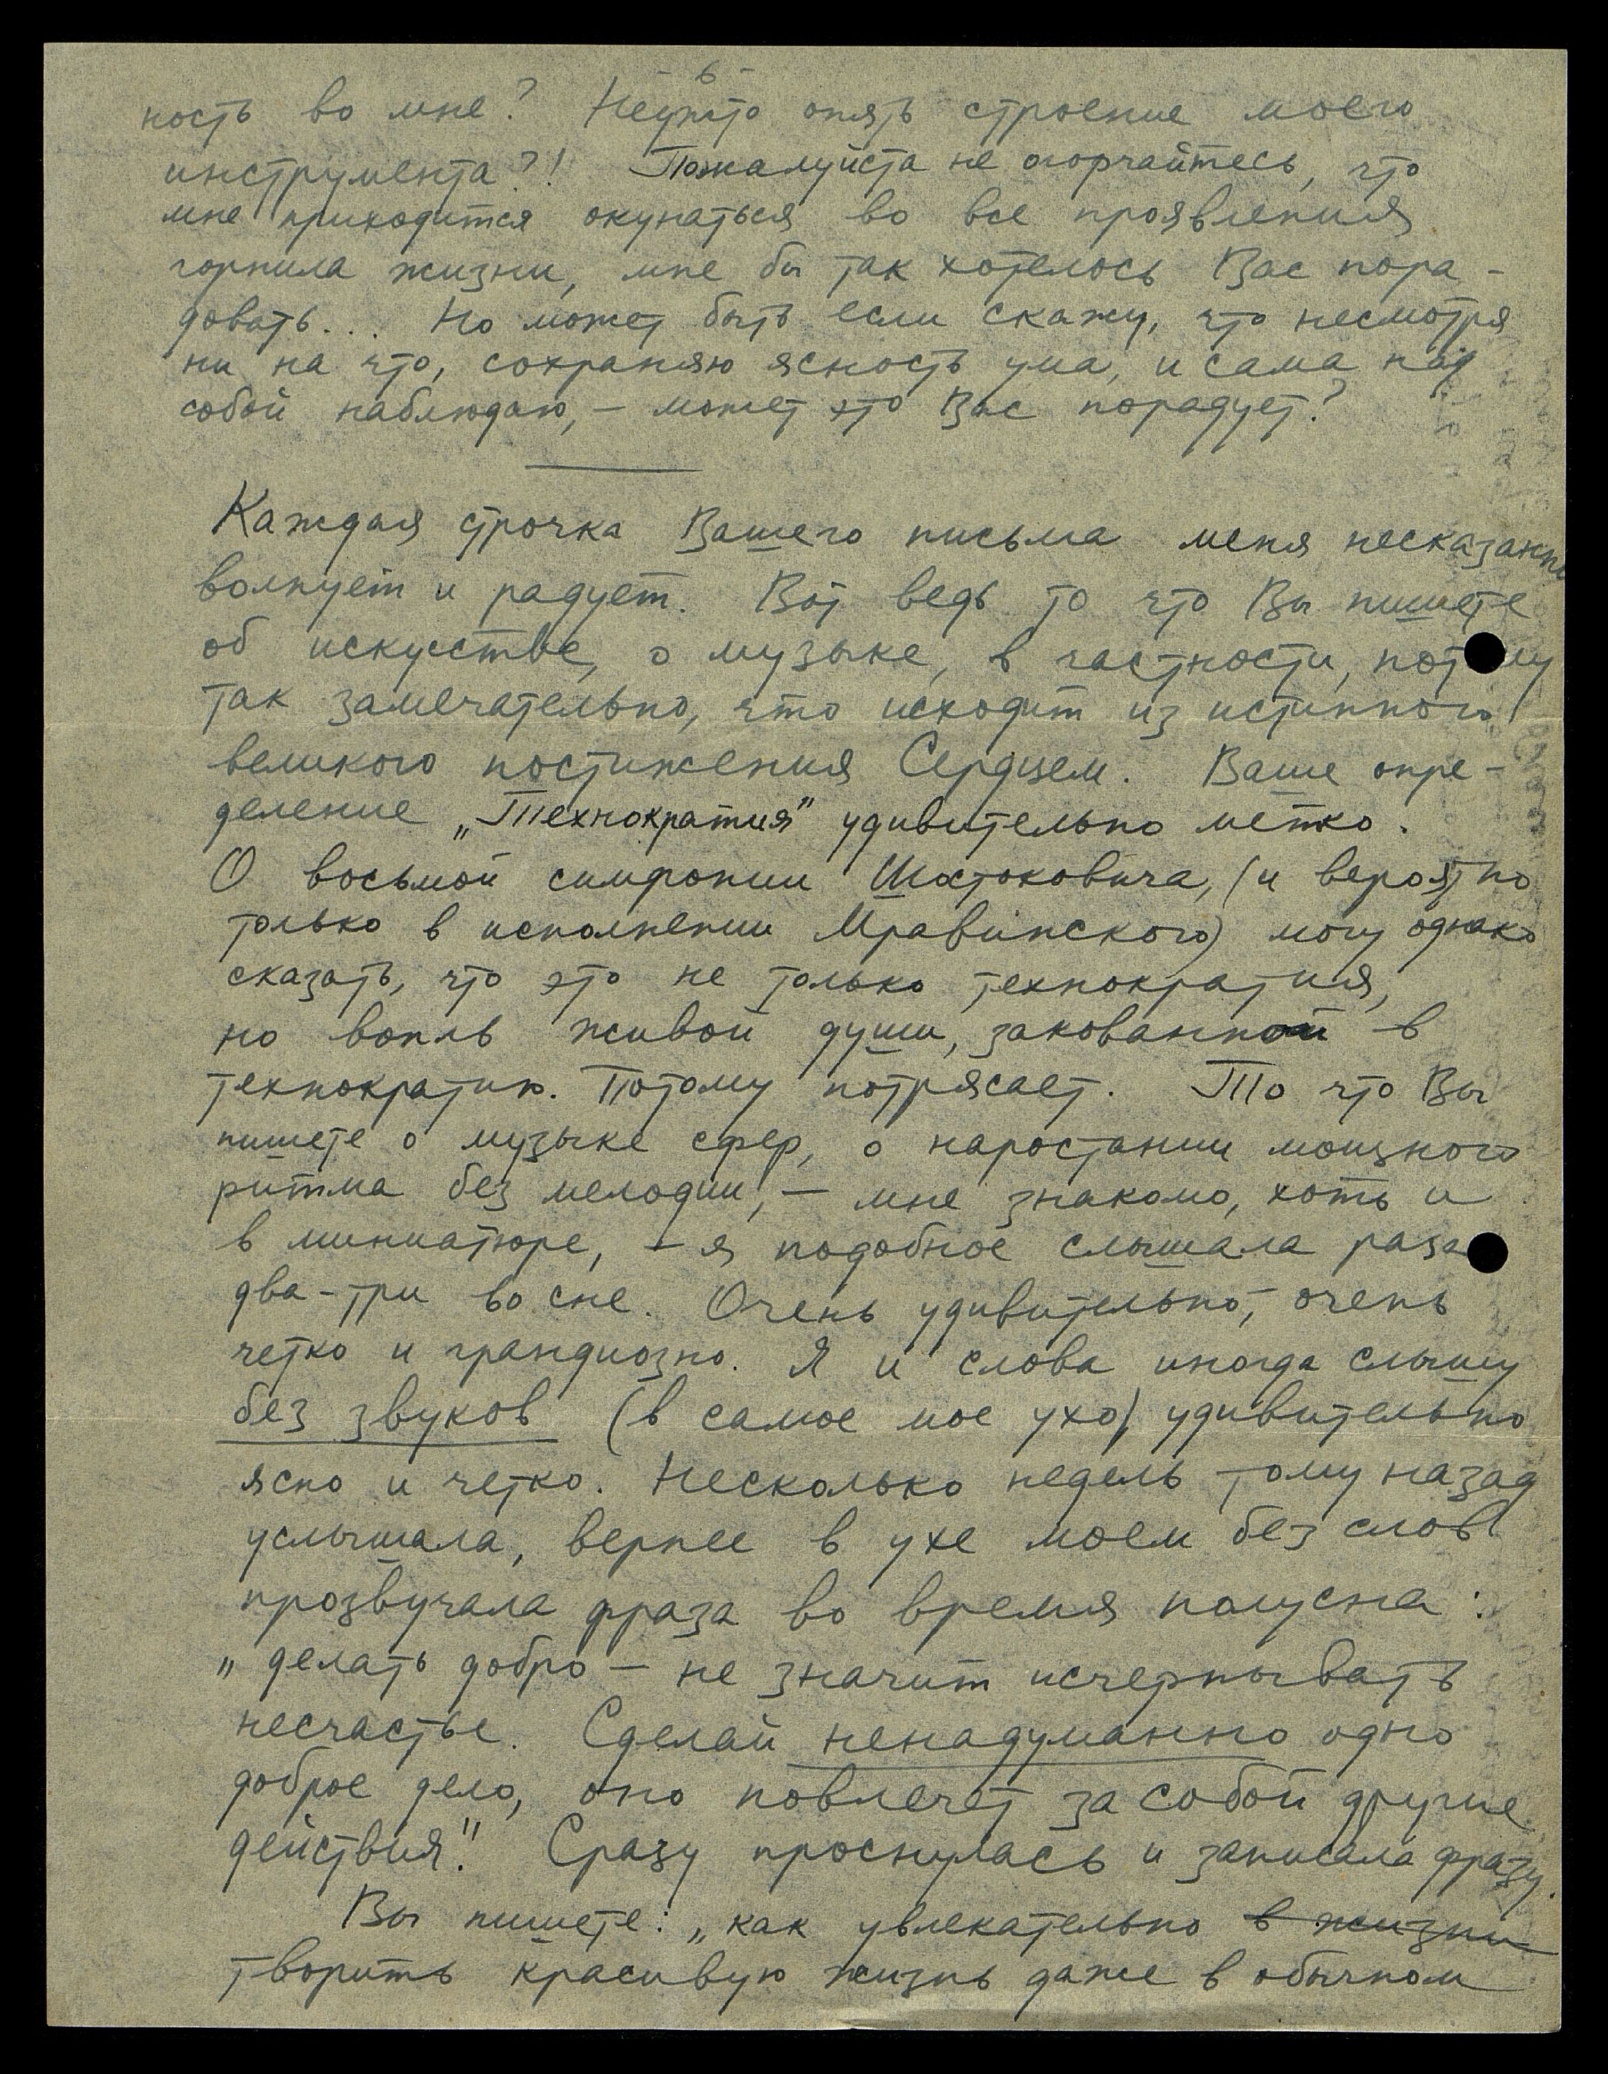 - 6 -
ность во мне? Неужто опять строение моего
инструмента?! Пожалуйста не огорчайтесь, что
мне приходится окунаться во все проявления
горнила жизни, мне бы так хотелось Вас пора-
довать... Но может быть если скажу, что несмотря
ни на что, сохраняю ясность ума, и сама над
собой наблюдаю, – может это Вас порадует?
Каждая строчка Вашего письма меня несказанно
волнует и радует. Вот ведь то что Вы пишете
об искусстве, о музыке, в частности, потому
так замечательно, что исходит из истинного
великого постижения Сердцем. Ваше опре-
деление „Технократия" удивительно метко.
О восьмой симфонии Шостаковича, (и вероятно
только в исполнении Мравинского) могу однако
сказать, что это не только технократия,
но вопль живой души, закованной в
технократию. Потому потрясает. То что Вы
пишете о музыке сфер, о наростании мощного
ритма без мелодии, – мне знакомо, хоть и
в миниатюре, – я подобное слышала раза
два-три во сне. Очень удивительно, очень
четко и грандиозно. Я и слова иногда слышу
без звуков (в самое мое ухо) удивительно
ясно и четко. Несколько недель тому назад
услышала, вернее в ухе моем без слов
прозвучала фраза во время полусна:
„делать добро – не значит исчерпывать
несчастье. Сделай ненадуманно одно
доброе дело, оно повлечет за собой другие
действия". Сразу проснулась и записала фразу.
Вы пишете: „как увлекательно в жизни
творить красивую жизнь даже в обычном